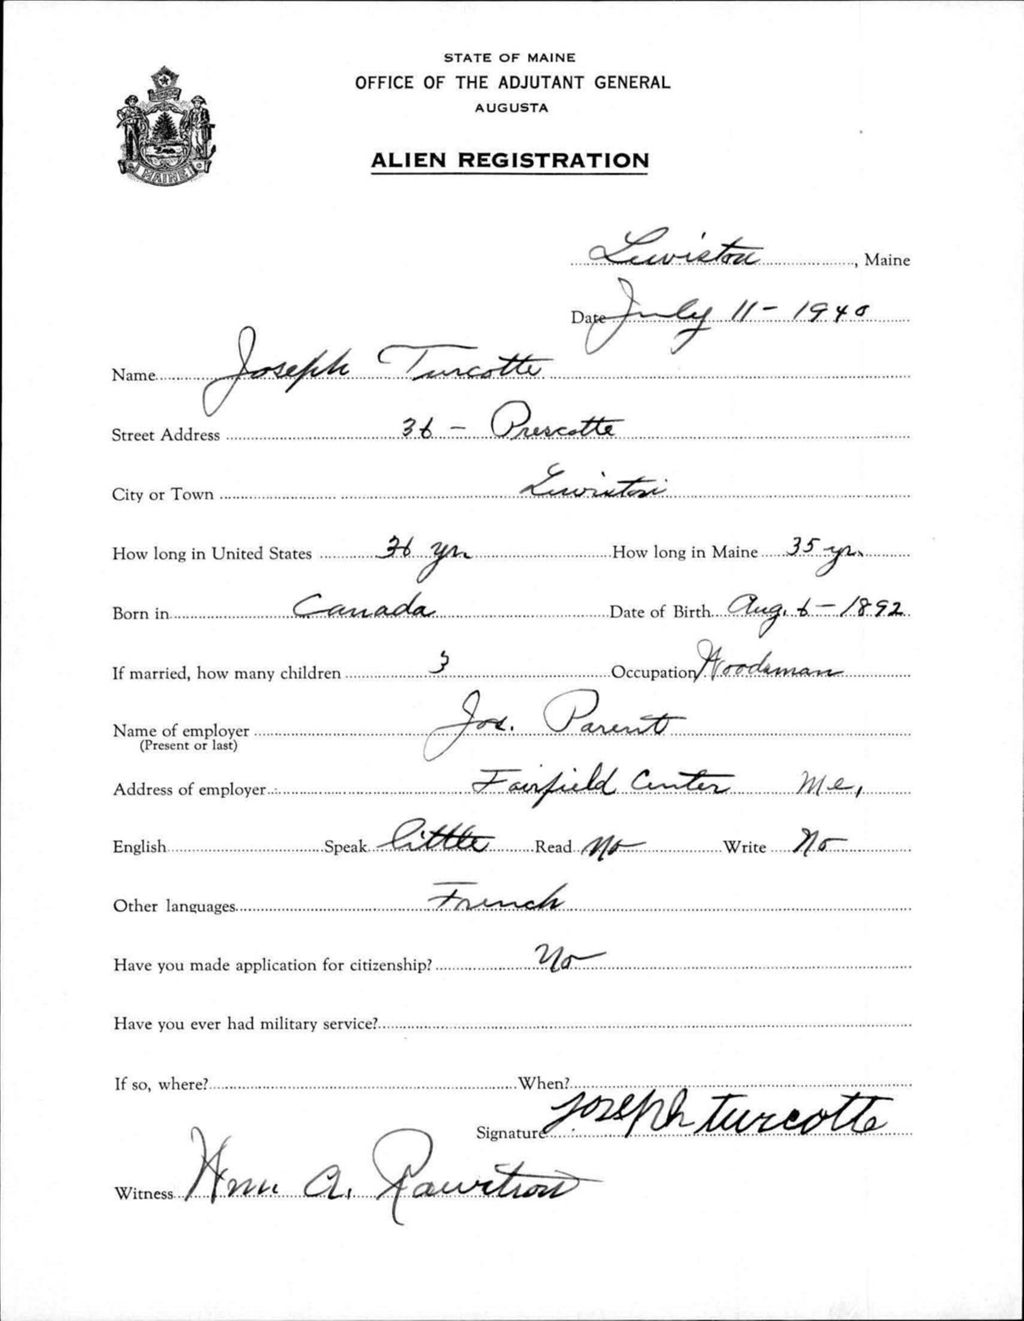 STATE OF MAINE
OFFICE OF THE ADJUTANT GENERAL
AUGUSTA
ALIEN REGISTRATION
MAINE
Lewiston, Maine
Date July 11 - 1940
Name Joseph Turcotte
Street Address 36 - Prescotte
City or Town Lewiston
How long in United States 36 yrs How long in Maine 35 yr.
Born in Canada Date of Birth Aug. 6 - 1892
If married, how many children 3 Occupation Woodsman
Name of employer Jos. Parent
(Present or last)
Address of employer Fairfield Center Me,
English Speak little Read No Write No
Other languages French
Have you made application for citizenship? No
Have you ever had military service?
If so, where? When?
Signature Joseph turcotte
Witness Wm. A.